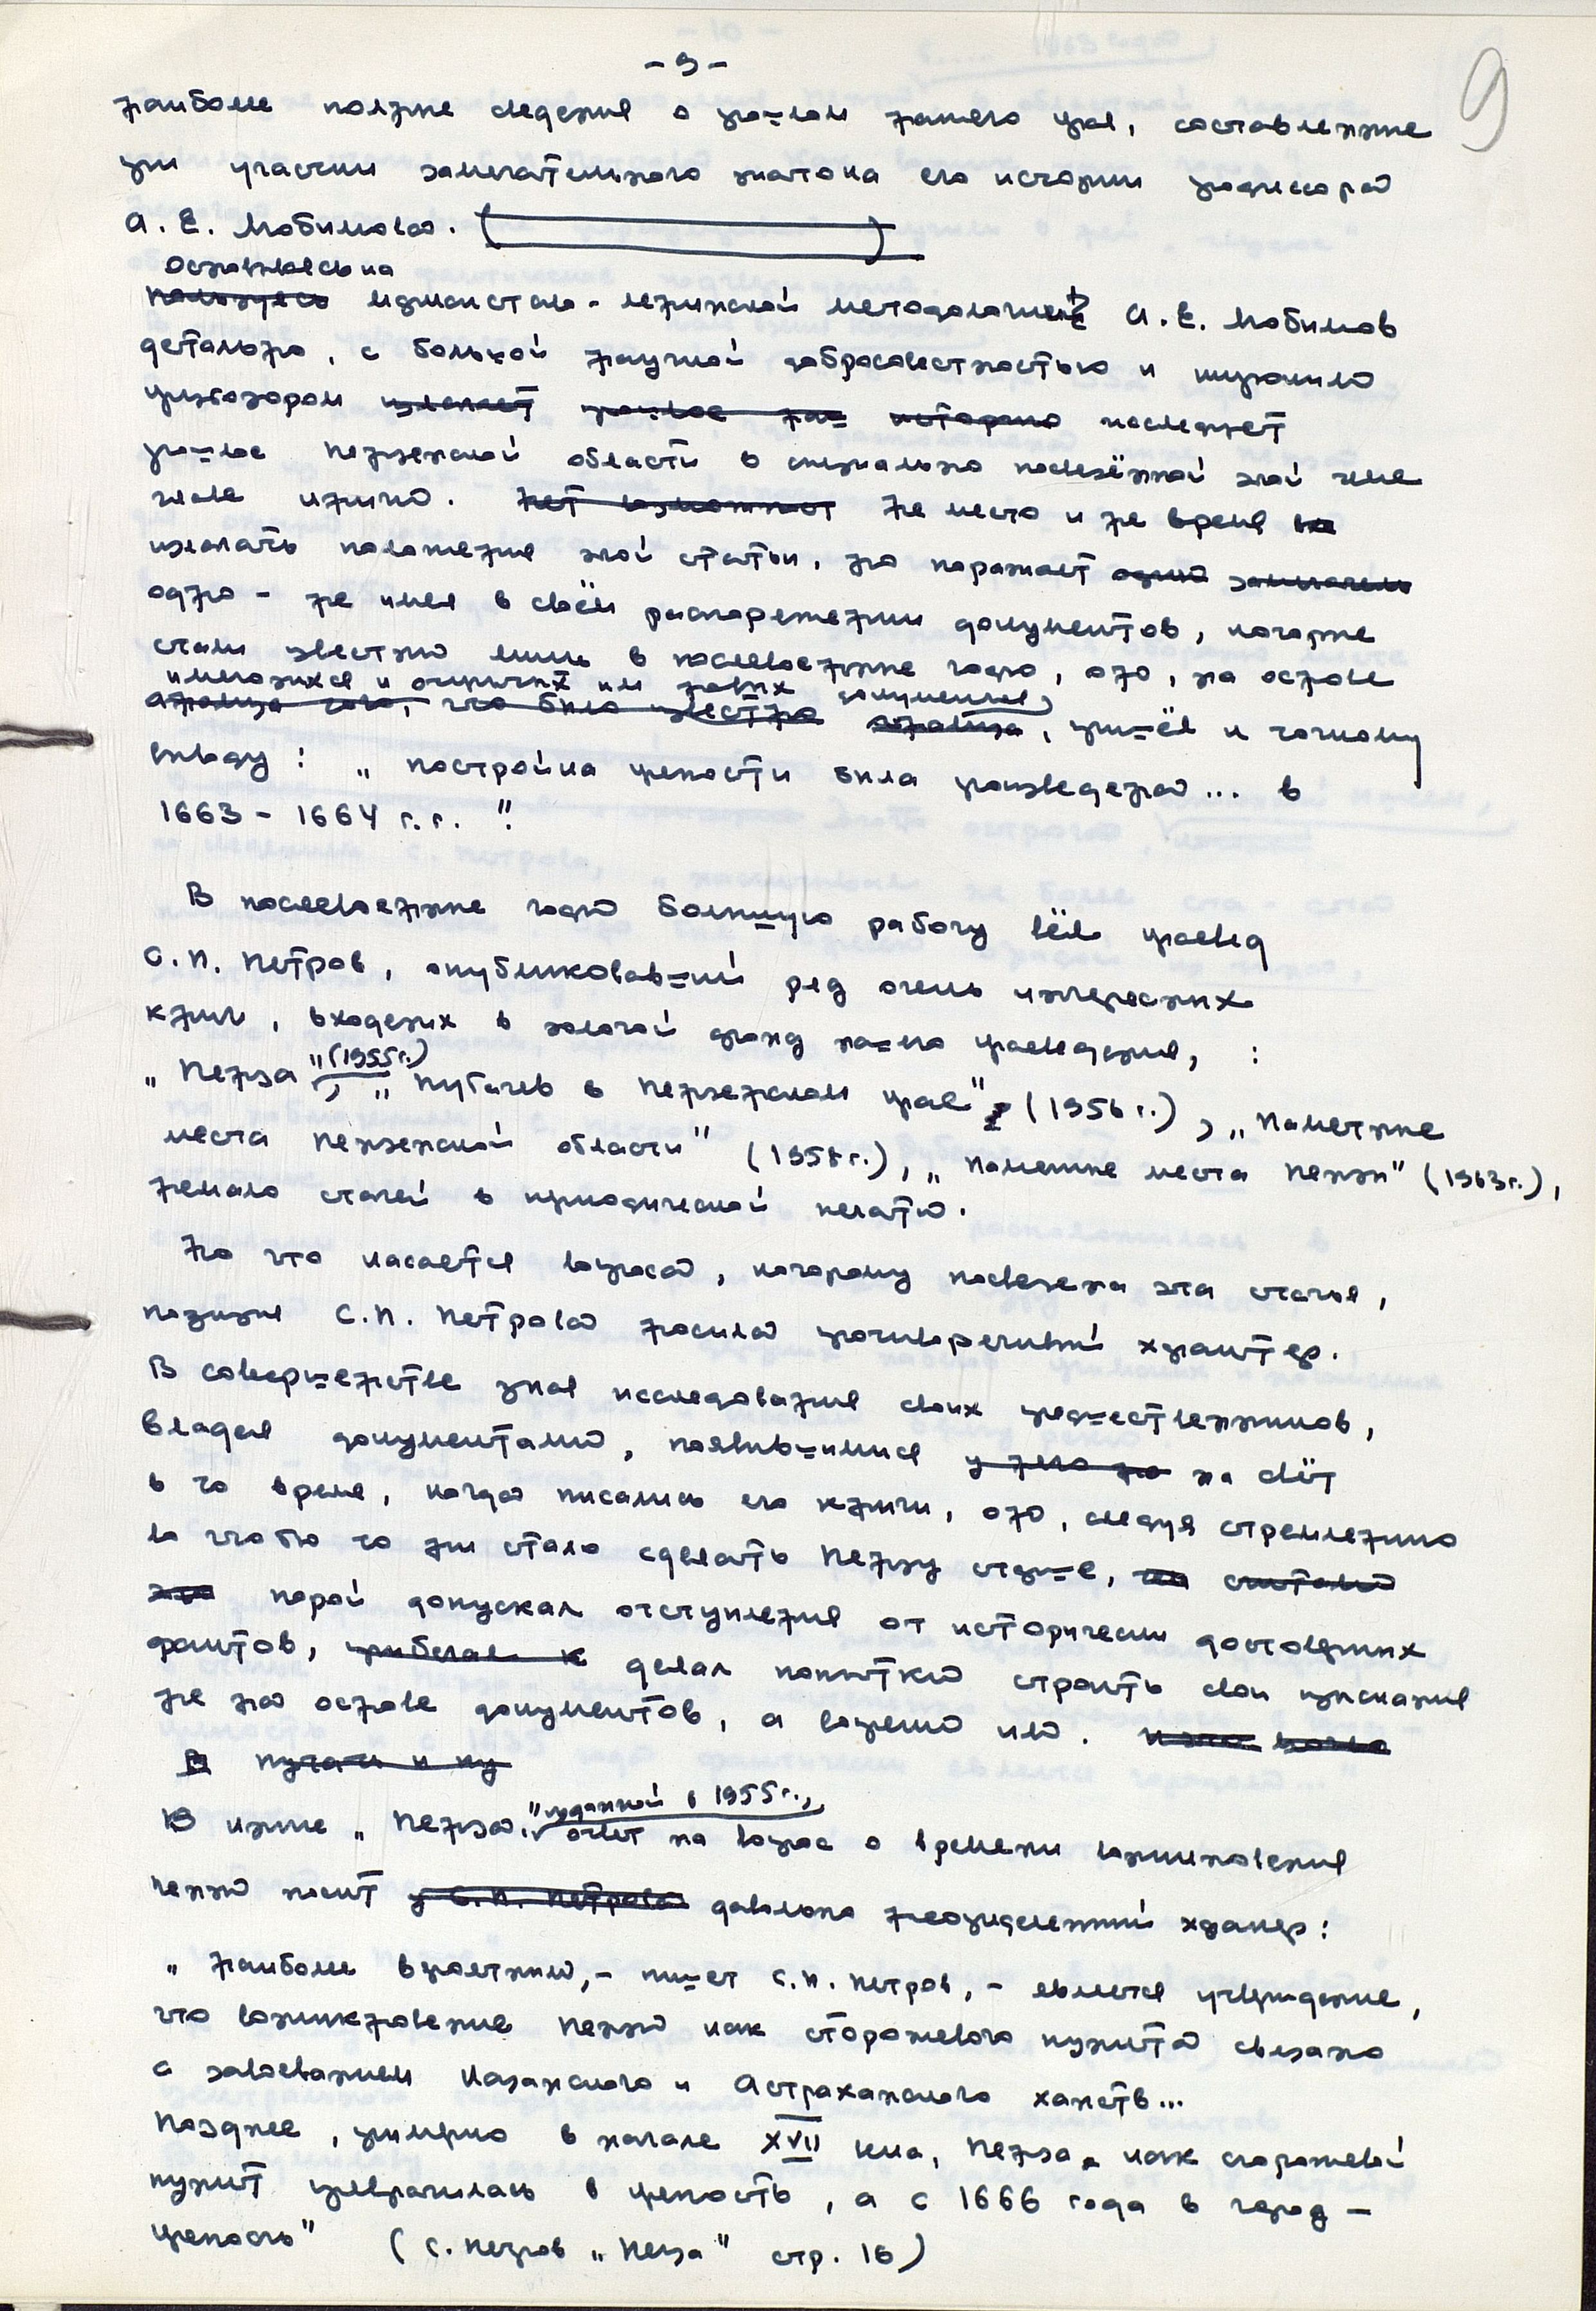 - 9 -
9
наиболее полные сведения о прошлом нашего края, составленные
при участии замечательного знатока его истории профессора
А. Е. Любимова.
Основываясь на
пользуясь марксистско-ленинской методологией А. Е. Любимов
детально, с большой научной добросовестностью и широким
кругозором излагает прошлое на= историю исследует
прошлое Пензенской области в специально посвящённой этой теме
главе книги. Нет возможност Не место и не время
излагать положения этой статьи, но поражает одно замечатель
одно - не имея в своём распоряжении документов, которые
стали известны лишь в послевоенные годы, он, на основе
имеющихся и открытых им новых документов
анализа того, что было известно анализа, пришёл к точному
выводу: „постройка крепости была произведена... в
1663 - 1664 г.г."
В послевоенные годы большую работу вёл краевед
С. П. Петров, опубликовавший ряд очень интересных
книг, входящих в золотой фонд нашего краеведения, :
„Пенза" (1955 г.), „Пугачев в Пензенском крае" (1956 г.), „Памятные
места Пензенской области" (1958 г.), „Памятные места Пензы" (1963 г.),
немало статей в периодической печати.
Но что касается вопроса, которому посвящена эта статья,
позиция С. П. Петрова носила противоречивый характер.
В совершенстве зная исследования своих предшественников,
владея документами, появившимися у него на на свет
в то время, когда писались его книги, он, следуя стремлению
во что бы то ни стало сделать Пензу старше, считал
порой допускал отступления от исторически достоверных
фактов, прибегал к делал попытки строить свои изыскания
не на основе документов, а вопреки им.
В
В книге „Пенза", изданной в 1955 г., ответ на вопрос о времени возникновения
Пензы носит у С. П. Петрова довольно неопределенный характер:
„Наиболее вероятным, - пишет С. П. Петров, - является утверждение,
что возникновение Пензы как сторожевого пункта связано
с завоеванием Казанского и Астраханского ханств...
Позднее, примерно в начале XVII века, Пенза как сторожевой
пункт превратилась в крепость, а с 1666 года в город -
крепость" (С. Петров „Пенза" стр. 16)